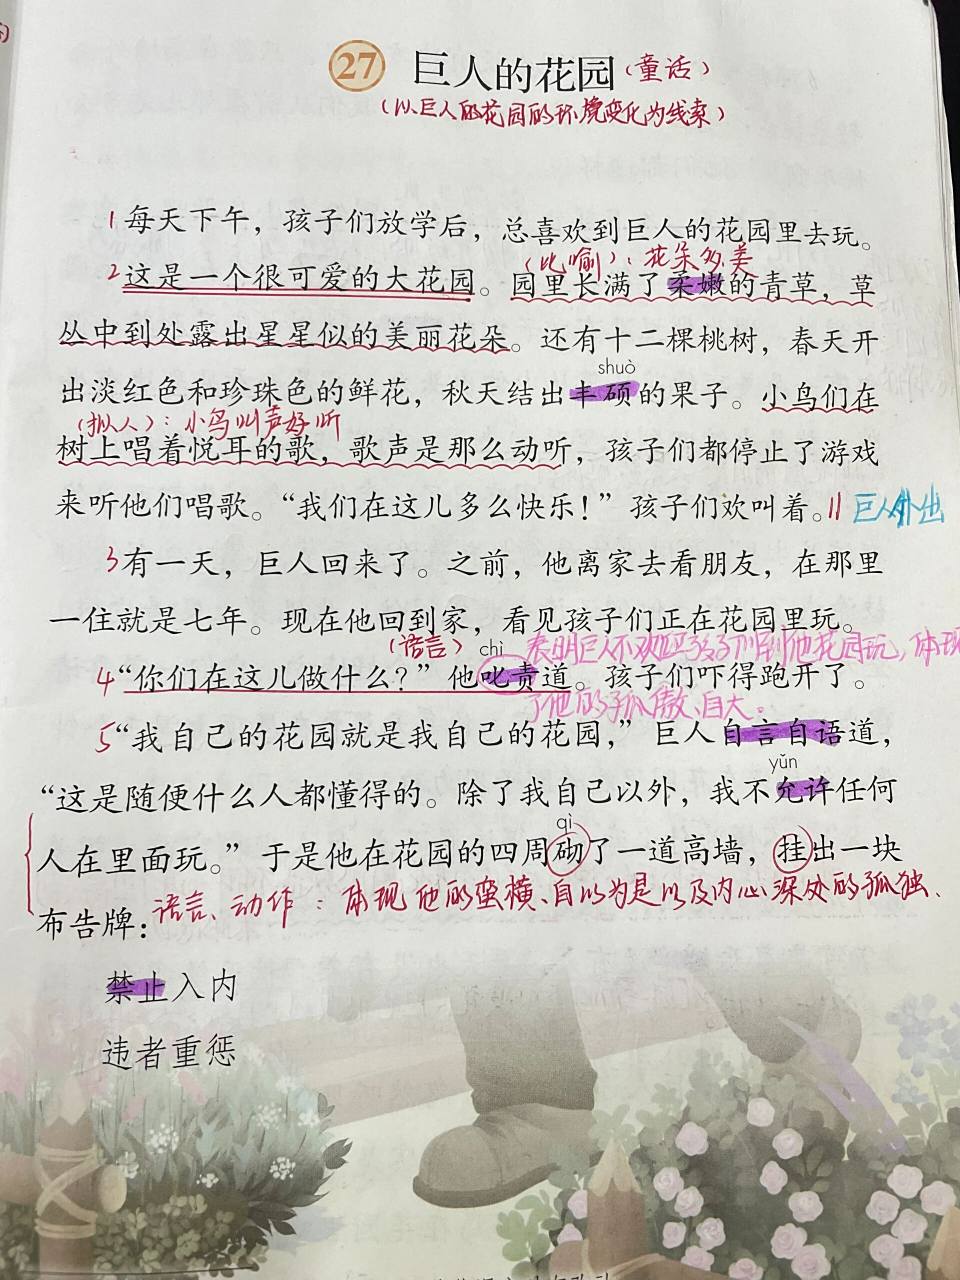 27 巨人的花园(童话)
(以巨人的花园的环境变化为线索)
1 每天下午，孩子们放学后，总喜欢到巨人的花园里去玩。
(比喻)：花朵多、美
2 这是一个很可爱的大花园。园里长满了柔嫩的青草，草
丛中到处露出星星似的美丽花朵。还有十二棵桃树，春天开
shuò
出淡红色和珍珠色的鲜花，秋天结出丰硕的果子。小鸟们在
(拟人)：小鸟叫声好听
树上唱着悦耳的歌，歌声是那么动听，孩子们都停止了游戏
来听他们唱歌。“我们在这儿多么快乐！”孩子们欢叫着。|| 巨人外出
3 有一天，巨人回来了。之前，他离家去看朋友，在那里
一住就是七年。现在他回到家，看见孩子们正在花园里玩。
(语言) chì 表明巨人不欢迎孩子们到他花园玩，体现
4 “你们在这儿做什么？”他叱责道。孩子们吓得跑开了。
了他的孤傲、自大。
5 “我自己的花园就是我自己的花园，”巨人自言自语道，
yǔn
“这是随便什么人都懂得的。除了我自己以外，我不允许任何
qì
人在里面玩。”于是他在花园的四周砌了一道高墙，挂出一块
语言、动作：体现他的蛮横、自以为是以及内心深处的孤独、
布告牌：
禁止入内
违者重惩